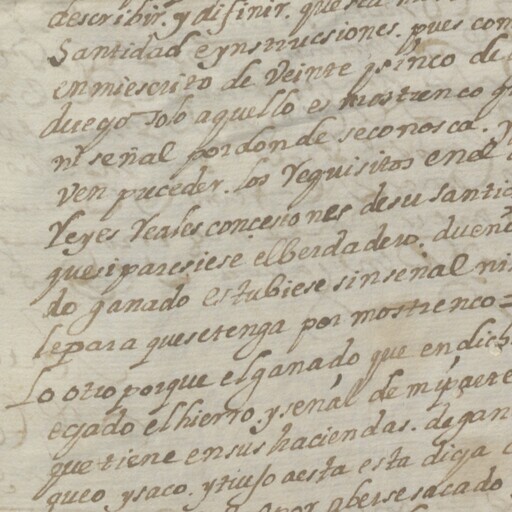 describir. y difinir. que sea
Santidad e ynstrucsiones. pues con
en mi escrito de veinte y sinco de
duego solo aquello es mostrenco q
ni señal por donde se conosca. y
ven preceder. los requisitos en el
leyes reales concesiones de su santi
que si paresiese el berdadero. dueño
do ganado estubiese sin señal ni
le para que se tenga por mostrenco =
Lo otro porque el ganado que en dich
egado el hierro y señal de mi parte
que tiene en sus haciendas. de gan
queo y saco. y tiuso a esta esta diga
por aberse sacado